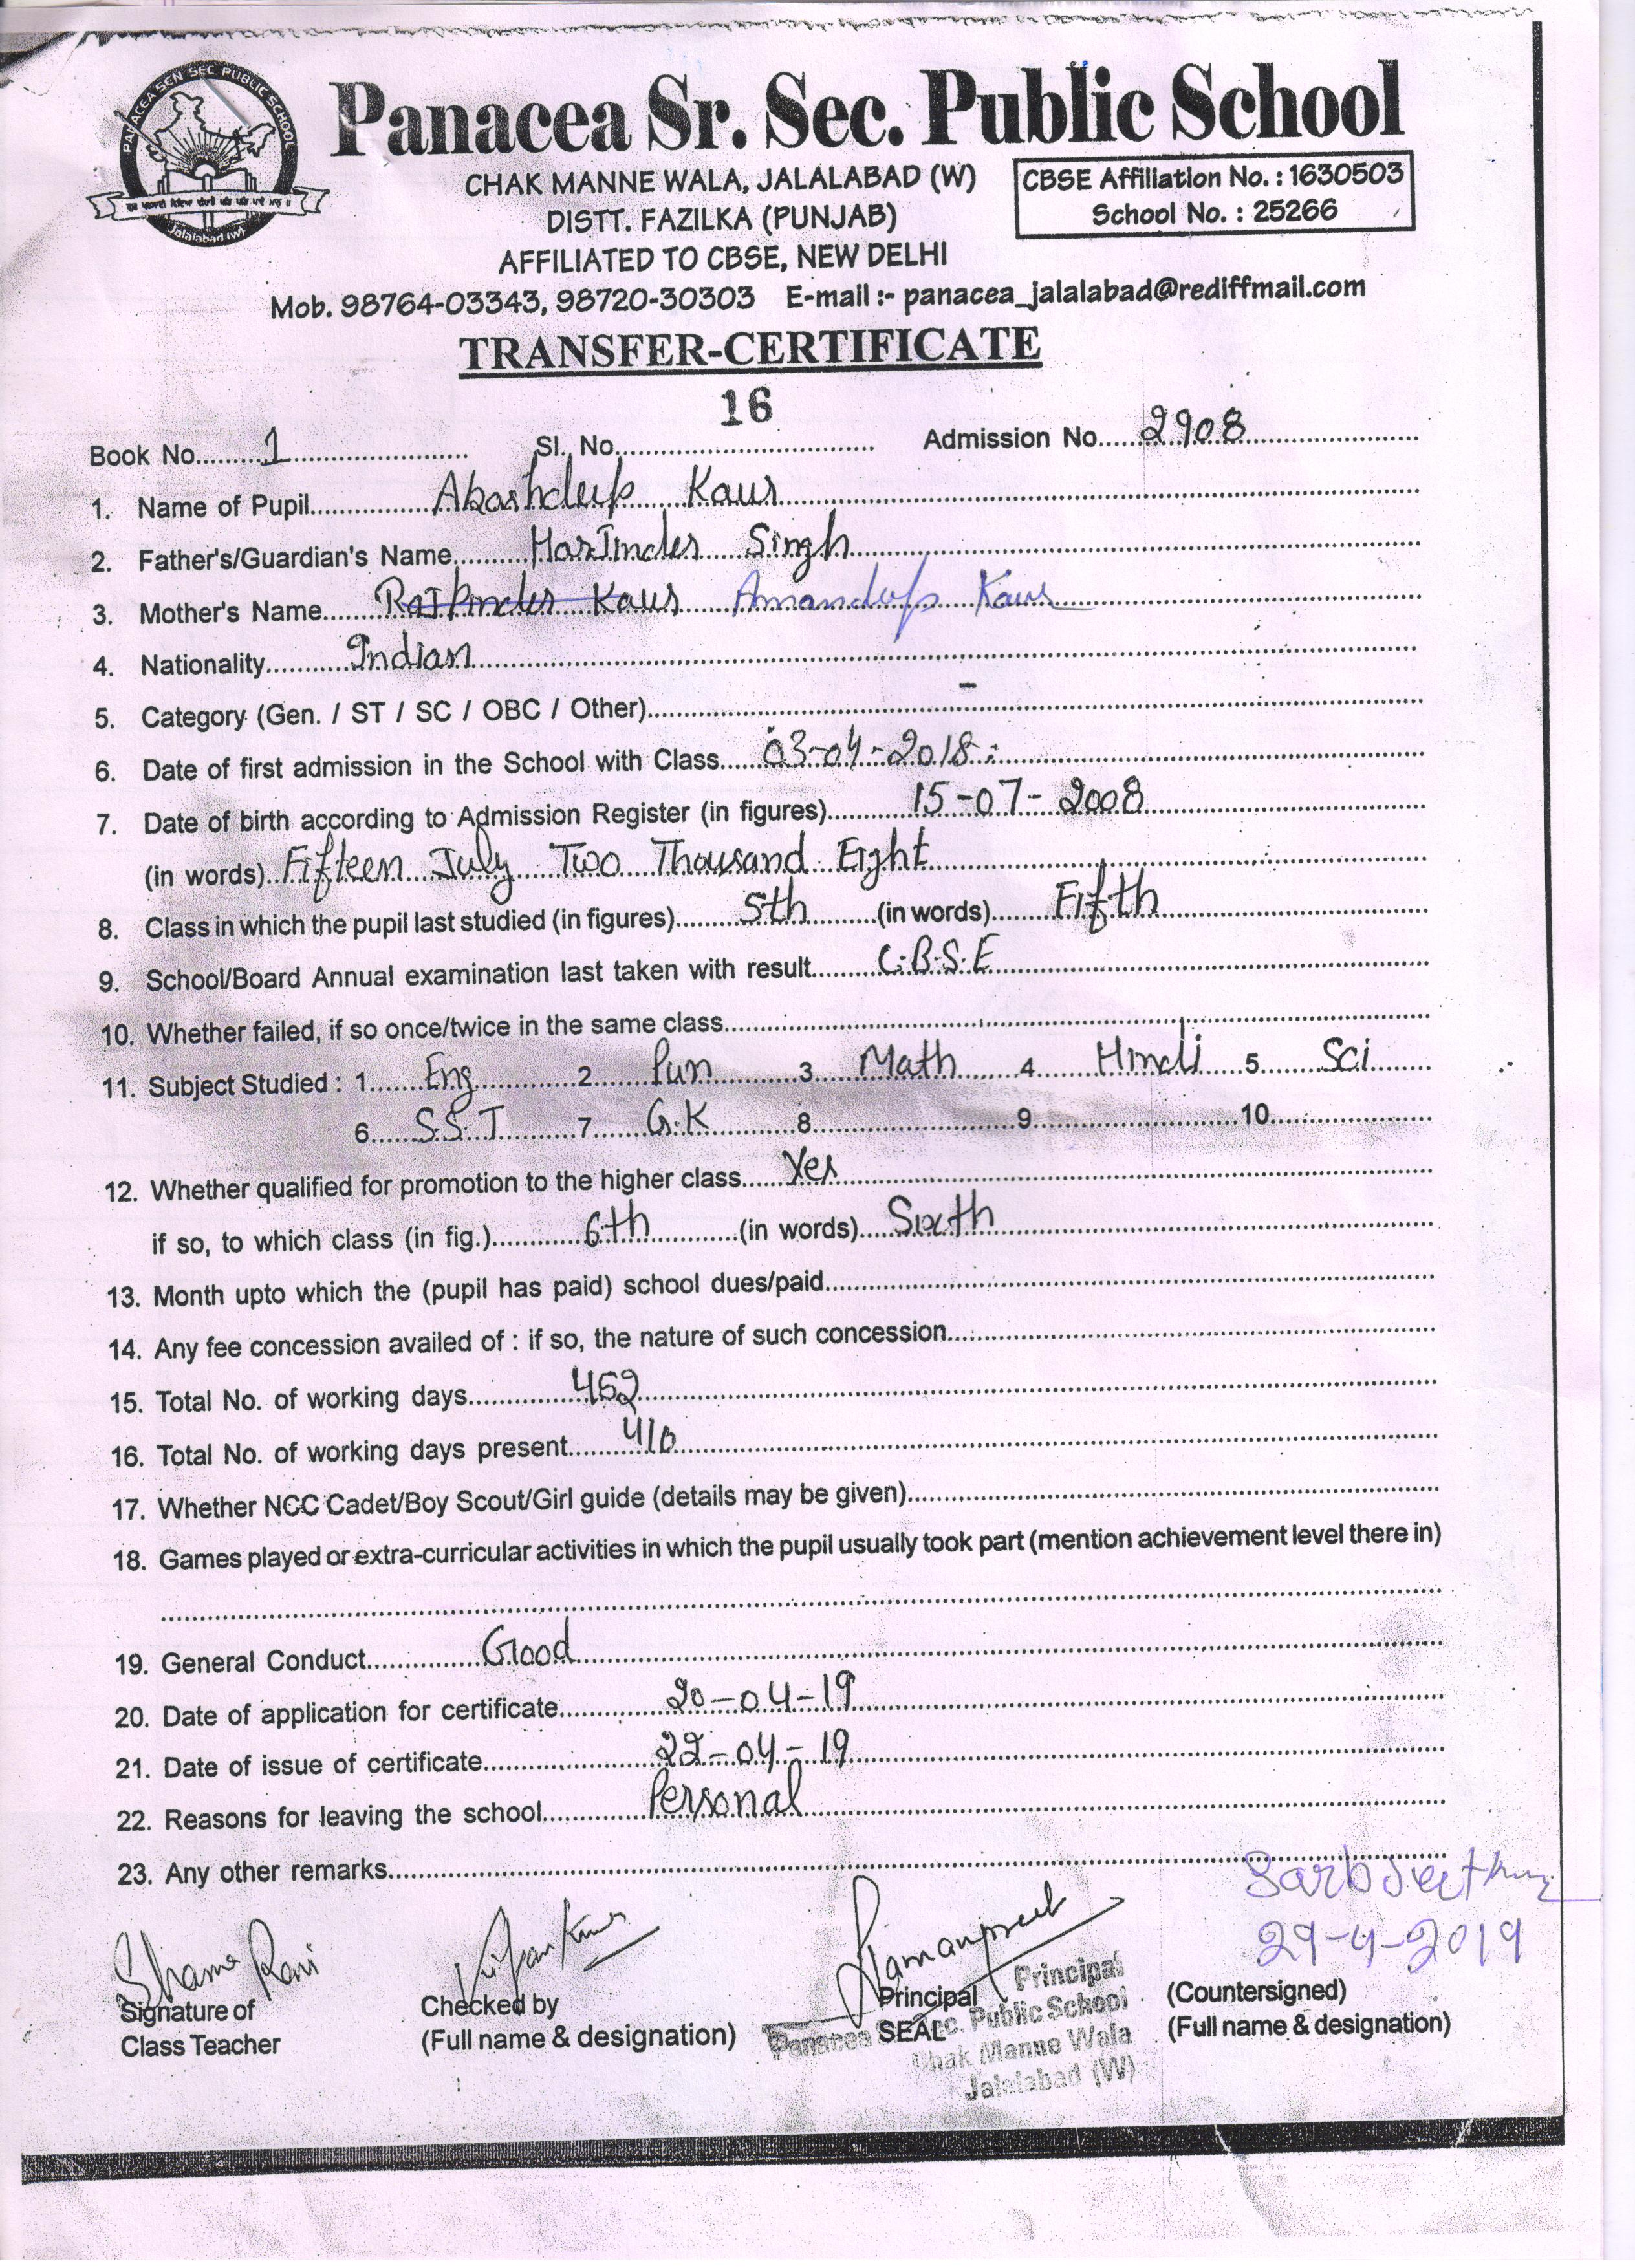 PANACEA SEN SEC PUBLIC SCHOOL
Jalalabad (W)
Panacea Sr. Sec. Public School
CHAK MANNE WALA, JALALABAD (W)
DISTT. FAZILKA (PUNJAB)
AFFILIATED TO CBSE, NEW DELHI
CBSE Affiliation No. : 1630503
School No. : 25266
Mob. 98764-03343, 98720-30303 E-mail :- panacea_jalalabad@rediffmail.com
TRANSFER-CERTIFICATE
16
Book No. 1 Sl. No. Admission No. 2908
1. Name of Pupil Akashdeep Kaur
2. Father's/Guardian's Name HarJinder Singh
3. Mother's Name Kaur Amandeep Kaur
4. Nationality Indian
5. Category (Gen. / ST / SC / OBC / Other) -
6. Date of first admission in the School with Class 03-04-2018
7. Date of birth according to Admission Register (in figures) 15-07-2008
(in words) Fifteen July Two Thousand Eight
8. Class in which the pupil last studied (in figures) 5th (in words) Fifth
9. School/Board Annual examination last taken with result C.B.S.E
10. Whether failed, if so once/twice in the same class
11. Subject Studied : 1 Eng 2 Pun 3 Math 4 Hindi 5 Sci
6 S.S.T 7 G.K 8 9 10
12. Whether qualified for promotion to the higher class Yes
if so, to which class (in fig.) 6th (in words) Sixth
13. Month upto which the (pupil has paid) school dues/paid
14. Any fee concession availed of : if so, the nature of such concession
15. Total No. of working days 452
16. Total No. of working days present 410
17. Whether NCC Cadet/Boy Scout/Girl guide (details may be given)
18. Games played or extra-curricular activities in which the pupil usually took part (mention achievement level there in)
19. General Conduct Good
20. Date of application for certificate 20-04-19
21. Date of issue of certificate 22-04-19
22. Reasons for leaving the school Personal
23. Any other remarks
Shama Rani
Signature of
Class Teacher
Checked by
(Full name & designation)
Ramanpreet
Principal
SEAL
Principal
Panacea Sec. Public School
Chak Manne Wala
Jalalabad (W)
29-4-2019
(Countersigned)
(Full name & designation)